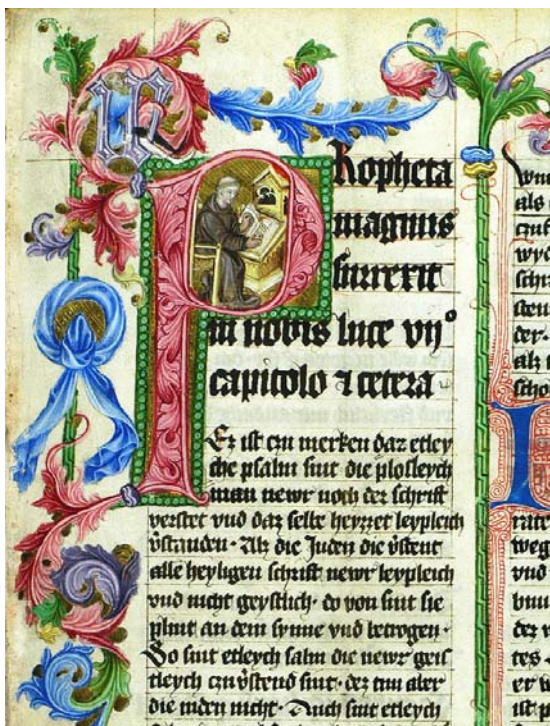 Propheta
magnus
surrexit
in nobis luce vij°
capitolo ⁊ cetera
Ez ist czu merken daz etley
che psalm sint die plosleych
man newr noch der schrift
verstet vnd daz selbe heyzzet leypleich
v̄standen· Alz die Juden die v̄stent
alle heyligen schrift newr leypleich
vnd nicht geystlich· do von sint sie
plint an dem synne vnd betrogen·
So sint etleych salm die newr geis
tleych czu v̄stend sint· dez tun aber
die iuden nicht· Auch sint etleych
als
der·
alz
weg
vnd
dez
tes·